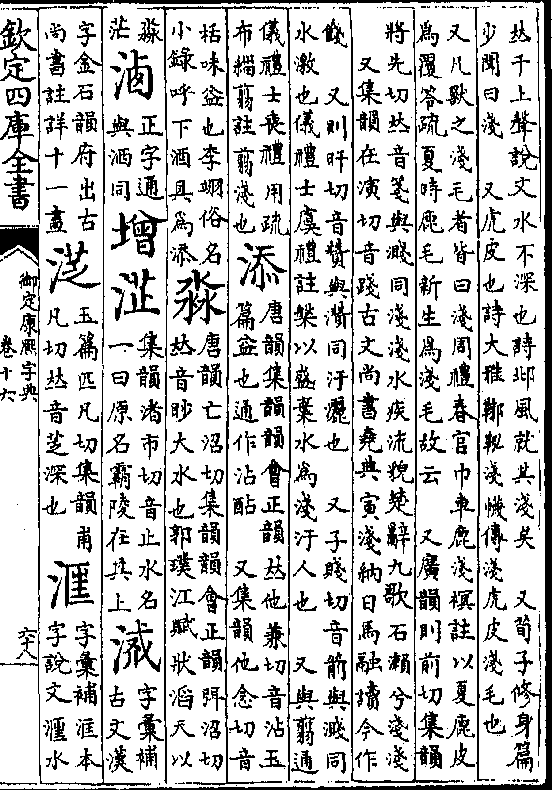 𠀤千上聲說文水不深也詩邶風就其淺矣　又荀子修身篇
少聞曰淺　又虎皮也詩大雅鞹鞃淺幭傳淺虎皮淺毛也
又凡獸之淺毛者皆曰淺周禮春官巾車鹿淺𧝓註以夏鹿皮
爲覆笭疏夏時鹿毛新生爲淺毛故云　又廣韻則前切集韻
將先切𠀤音箋與濺同淺淺水疾流貌楚辭九歌石瀨兮淺淺
又集韻在演切音踐古文尚書堯典寅淺納日馬融讀今作
餞　又則旰切音贊與灒同汙灑也　又子賤切音箭與濺同
水激也儀禮士虞禮註槃以盛棄水爲淺汙人也　又與翦通
儀禮士喪禮用疏
布緇翦註翦淺也
添
唐韻集韻韻會正韻𠀤他兼切音沾玉
篇益也通作沾酟　又集韻他念切音
栝味益也李翊俗名
小錄呼下酒具爲添
淼
唐韻亡沼切集韻韻會正韻弭沼切
𠀤音眇大水也郭璞江賦狀滔天以
淼
茫
滷
正字通
與酒同
增
淽
集韻渚市切音止水名
一曰原名霸陵在其上
減
字彙補
古文漢
字金石韻府出古
尚書註詳十一畫
𣴪
玉篇匹凡切集韻甫
凡切𠀤音芝深也
涯
字彙補滙本
字說文滙水
欽定四庫全書
御定康熙字典
卷十六
六十八